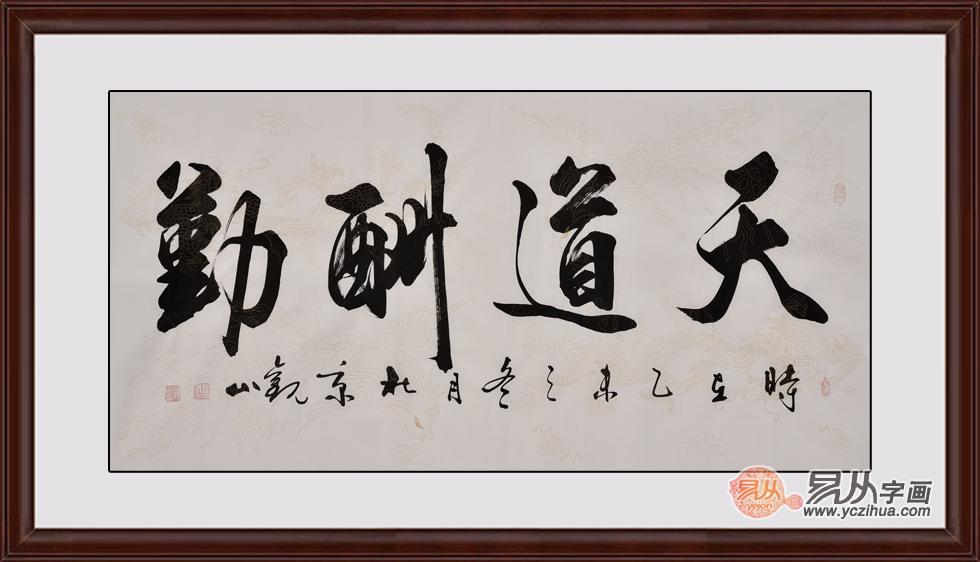 天道酬勤
時在乙未之冬月北京觀山
易从
yejon
易从字画
www.yczihua.com